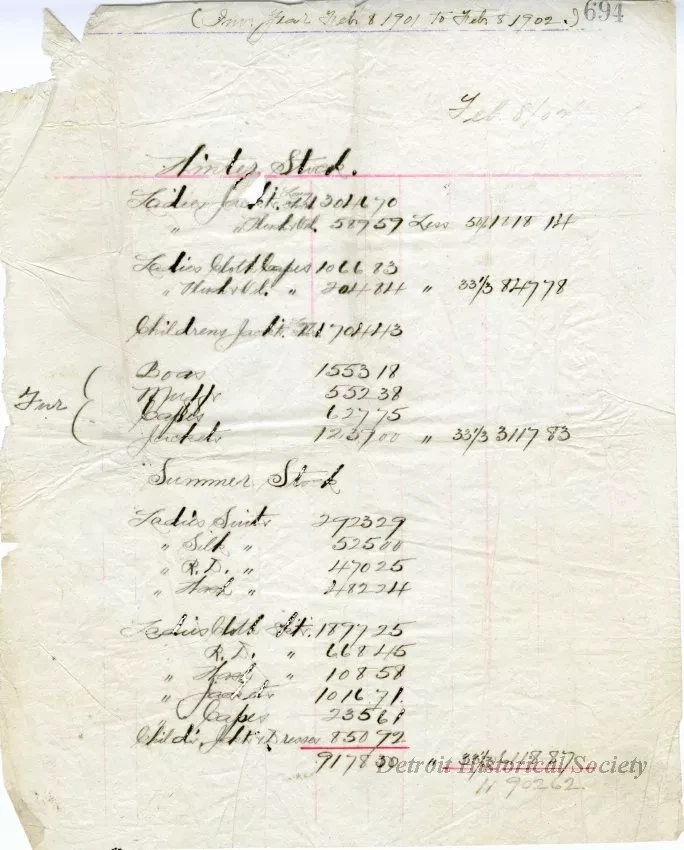 ( Inv Year Feb 8 1901 to Feb 8 1902. ) 694
Feb 8/02
Winter Stock.
Ladies Jackts. Long 304670
" " 58959 Less 50% 1818 14
Ladies Cloth Capes 1066 83
" " 204 84 " 33⅓ 847 78
Childrens Jackt. 1704 43
Fur
Boas 1553 18
Muffs 552 38
Capes 627 75
Jackets 1237 00 " 33⅓ 3117 83
Summer Stock
Ladies Suits 2923 29
" Silk " 525 00
" R.D. " 470 25
" Wash " 482 24
Ladies Cloth Skts. 1897 25
R.D. " 668 45
" Wash " 108 58
" Jackets 1016 71
" Capes 235 61
Child's Jkt & Dresses 850 92
9178 30 " 33⅓ 6118 87
11 902 62
Detroit Historical Society